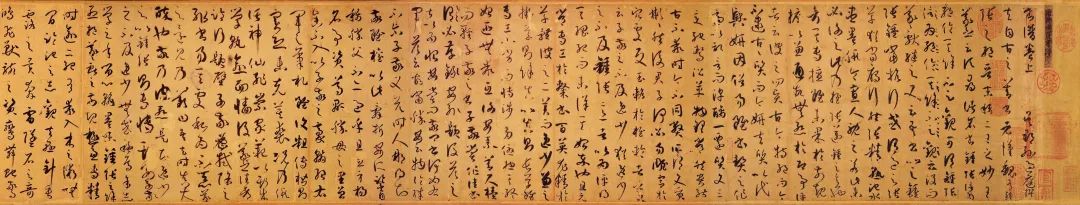 書譜卷上 吳郡孫過庭撰
夫自古之善書者漢魏有鍾
張之絕晉末稱二王之妙王
羲之云頃尋諸名書鍾張信
為絕倫其餘不足觀可謂鍾張
云沒而羲獻繼之又云吾書比之
鍾張鍾當抗行或謂過之張
草猶當雁行然張精熟池水
盡墨假令寡人耽之若此未
必謝之此乃推張邁鍾之意也
考其專擅雖未果於前規
摭以兼通故無慚於即事評
者云彼之四賢古今特絕而今
不逮古古質而今妍夫質以代
興妍因俗易雖書契之作
適以記言而淳醨一遷質文三
變馳騖沿革物理常然貴能
古不乖時今不同弊所謂文質
彬彬然後君子何必易雕宮於
穴處反玉輅於椎輪者乎又
云子敬之不及逸少猶逸少之
不及鍾張意者以為評得其
綱紀而未詳其始卒也且元
常專工於隸書百英尤精於
草體彼之二美而逸少兼之
擬草則餘真比真則長草
雖專工小劣而博涉多優
總其終始匪無乖互謝安
素善尺牘而輕子敬之書子
敬嘗作佳書與之謂必存
錄安輒題後答之甚以為
恨安嘗問敬卿書何如右
軍答云故當勝安云物論殊
不爾子敬又答時人那得知
敬雖權以此辭折安所鑒
自稱勝父不亦過乎且立身
揚名事資尊顯勝母之里
曾參不入以子敬之豪翰紹右
軍之筆札雖復粗傳楷
則實恐未克箕裘況乃假
託神仙恥崇家範以斯成
學孰愈面牆後羲之往都
臨行題壁子敬密拭除之
輒書易其處私為不惡羲
之還見乃歎曰吾去時真大
醉也敬乃內慚是知逸少
之比鍾張則專博斯別子敬
之不及逸少無或疑焉余志
學之年留心翰墨味鍾張之餘
烈挹羲獻之前規極慮專精
時逾二紀有乖入木之術無
間臨池之志觀夫懸針垂
露之異奔雷墜石之奇
鴻飛獸駭之資鸞舞蛇驚